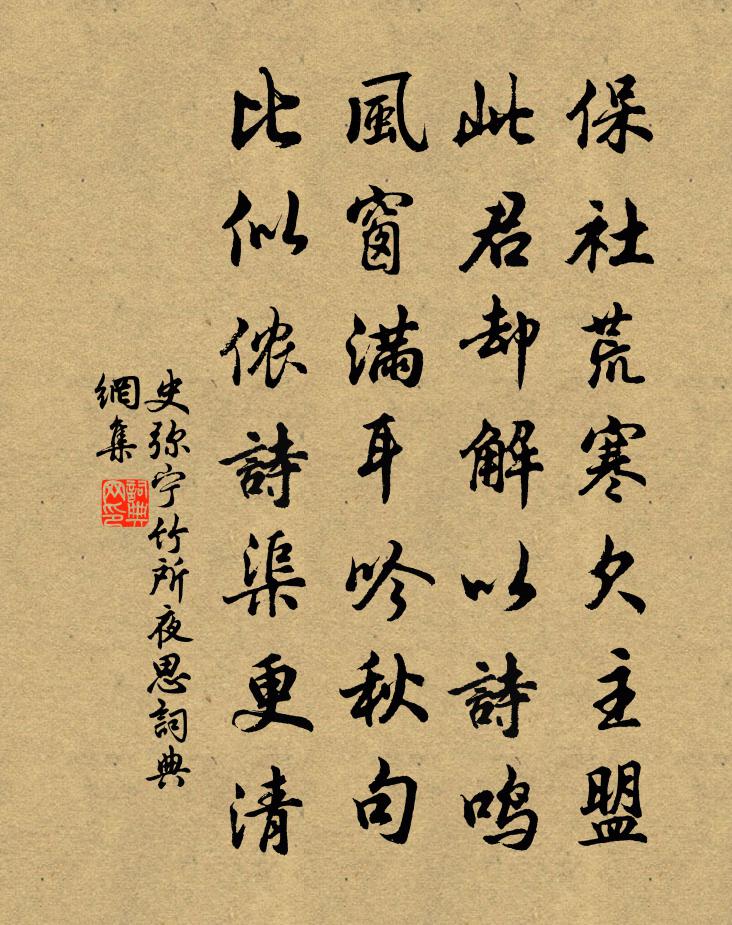 保社荒寒欠主盟
此君却解以詩鳴
風窗满耳吟秋句
比似侬詩渠更清
史弥宁竹所夜思詞典
網集
詞典
网印